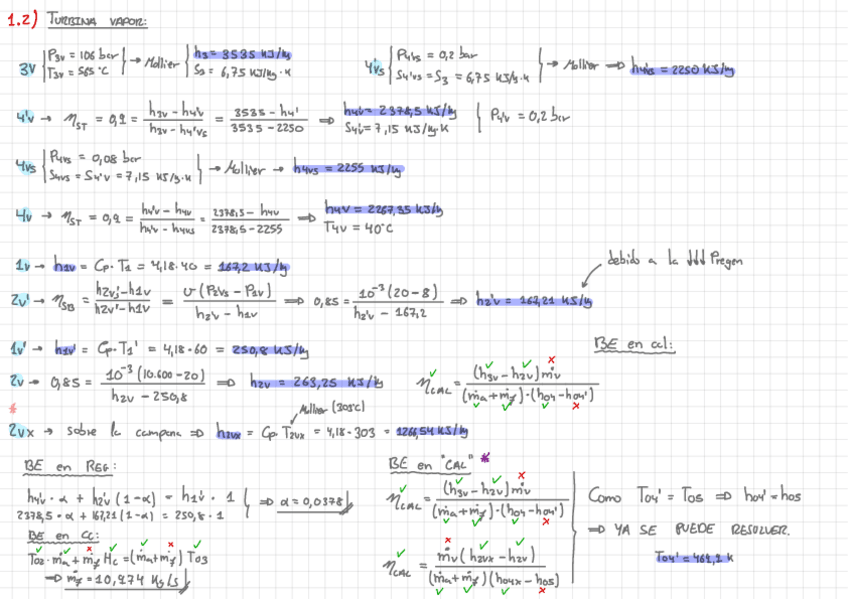 1.2) TURBINA VAPOR:
3V { P3v = 106 bar T3v = 565 °C } → Mollier { h3 = 3535 KJ/kg S3 = 6,75 KJ/kg·K
4'vs { P4'vs = 0,2 bar S4'vs = S3 = 6,75 KJ/kg·K } → Mollier ⇒ h4'vs = 2250 KJ/kg
4'v → ηST = 0,9 = (h3v - h4'v)/(h3v - h4'vs) = (3535 - h4')/(3535 - 2250) ⇒ h4'v = 2378,5 KJ/kg S4'v = 7,15 KJ/kg·K { P4'v = 0,2 bar
4vs { P4vs = 0,08 bar S4vs = S4'v = 7,15 KJ/kg·K } → Mollier → h4vs = 2255 KJ/kg
4v → ηST = 0,9 = (h4'v - h4v)/(h4'v - h4vs) = (2378,5 - h4v)/(2378,5 - 2255) ⇒ h4v = 2267,35 KJ/kg T4v = 40°C
debido a la ↓↓↓ Pregen
1v → h1v = Cp·T1 = 4,18·40 = 167,2 KJ/kg
2v' → ηSB = (h2v's - h1v)/(h2v' - h1v) = υ(P2vs - P1v)/(h2'v - h1v) ⇒ 0,85 = 10⁻³(20-8)/(h2'v - 167,2) ⇒ h2'v = 167,21 KJ/kg
1v' → h1v' = Cp·T1' = 4,18·60 = 250,8 KJ/kg
BE en cal:
2v → 0,85 = 10⁻³(10.600-20)/(h2v - 250,8) ⇒ h2v = 263,25 KJ/kg
ηCAL = (h3v - h2v)ṁv/((ṁa+ṁf)·(h04-h04'))
* Mollier (303°C)
2vx → sobre la campana ⇒ h2vx = Cp·T2vx = 4,18·303 = 1266,54 KJ/kg
BE en REG:
h4'v·α + h2'v(1-α) = h1'v·1
2378,5·α + 167,21(1-α) = 250,8·1 } ⇒ α = 0,0378
BE en CC:
T02·ṁa + ṁf Hc = (ṁa+ṁf) T03
⇒ ṁf = 10,974 Kg/s
BE en "CAL" *
ηCAL = (h3v - h2v)ṁv/((ṁa+ṁf)·(h04-h04'))
ηCAL = ṁv(h2vx - h2v)/((ṁa+ṁf)(h04x-h05))
Como T04' = T05 ⇒ h04' = h05
⇒ YA SE PUEDE RESOLVER.
T04' = 469,2 K